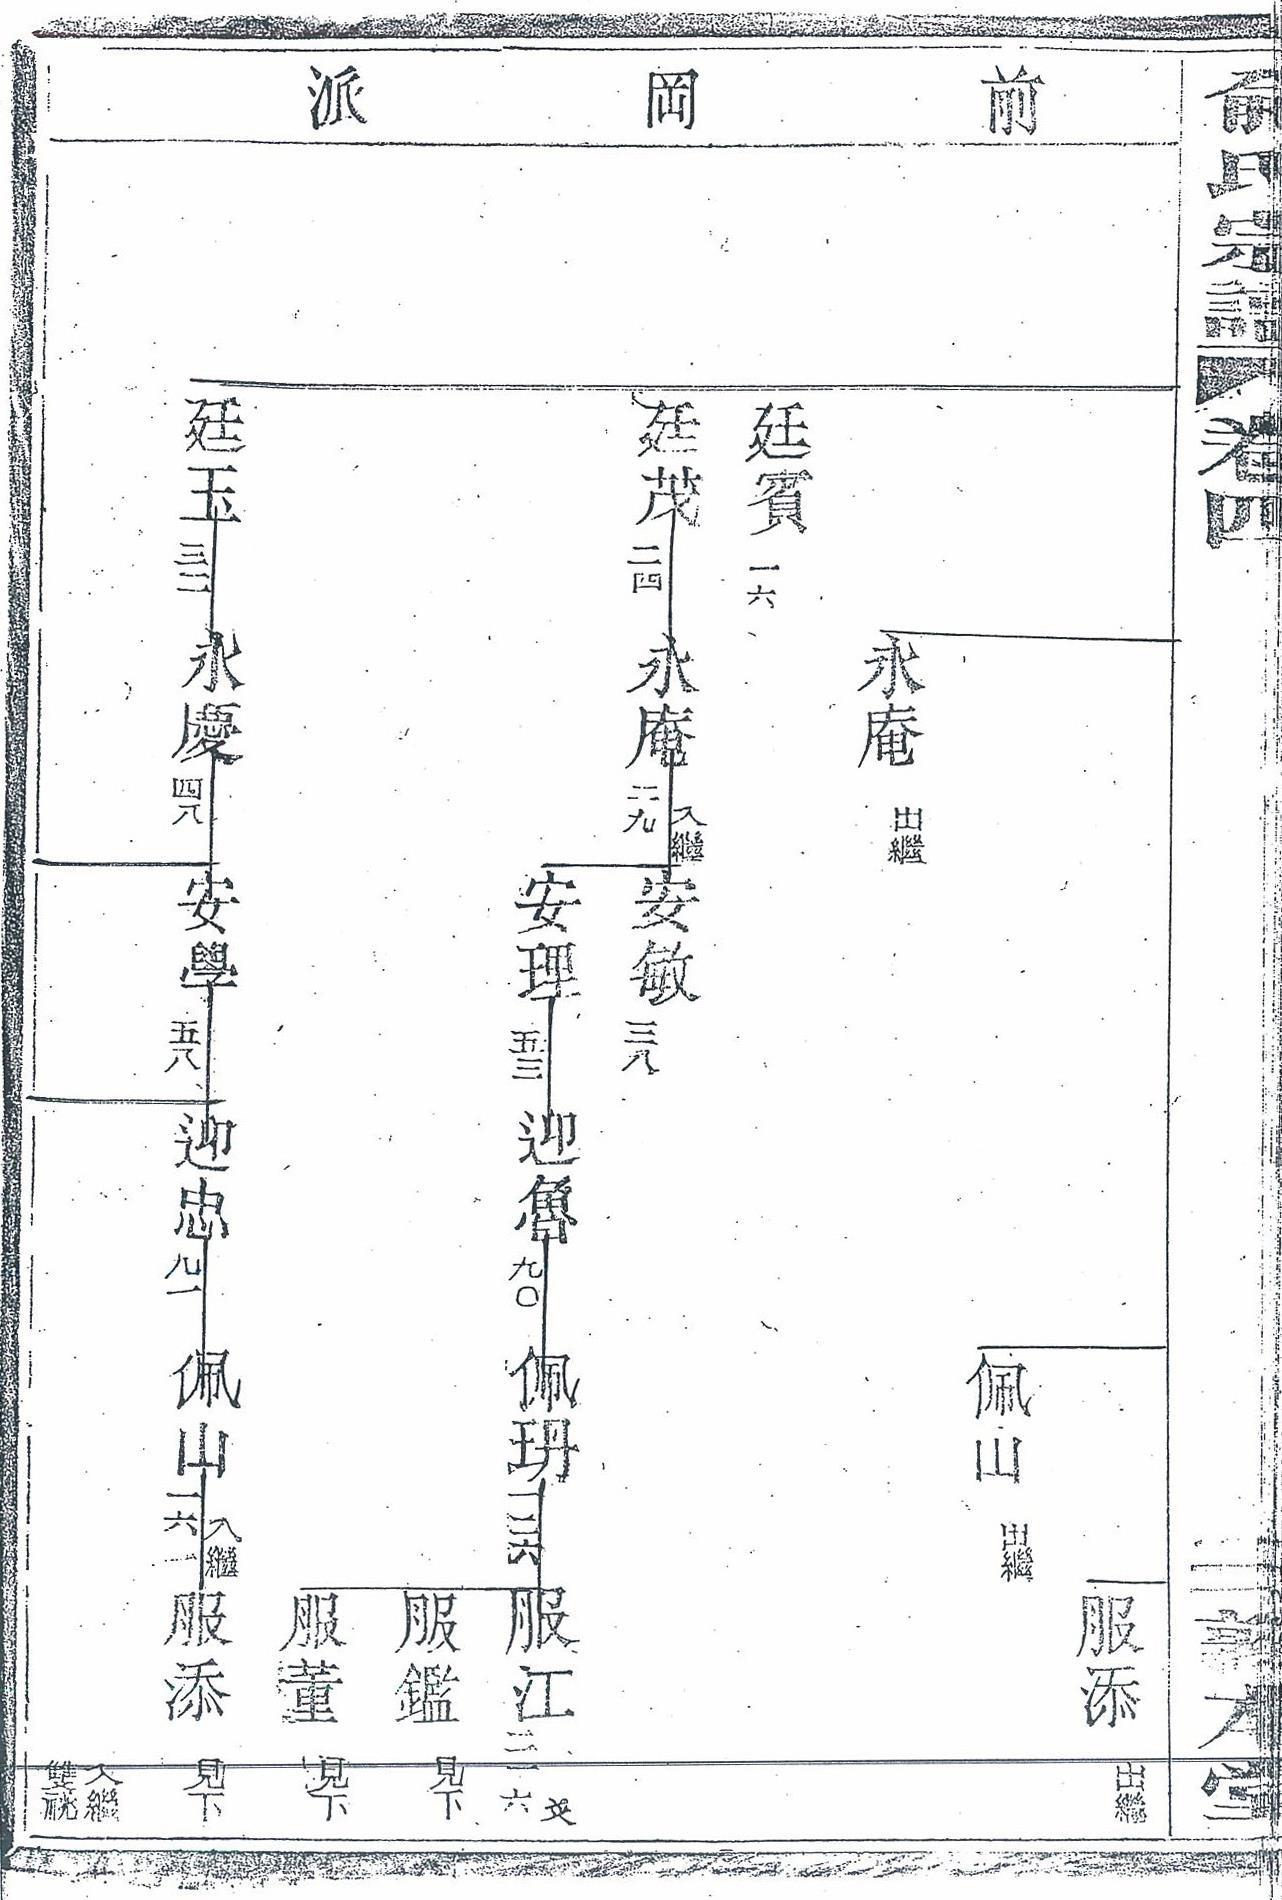 俞氏宗譜
卷四
二
堂
前岡派
服添
出繼
佩山
出繼
永庵
出繼
廷賓
一六
廷茂
二四
永庵
二九
入繼
安敏
三八
安理
五三
迎魯
九〇
佩玬
一三六
服江
三一六
服鑑
見下
服董
見下
廷玉
三二
永慶
四八
安學
五八
迎忠
九一
佩山
一六一
入繼
服添
見下
入繼
雙祧